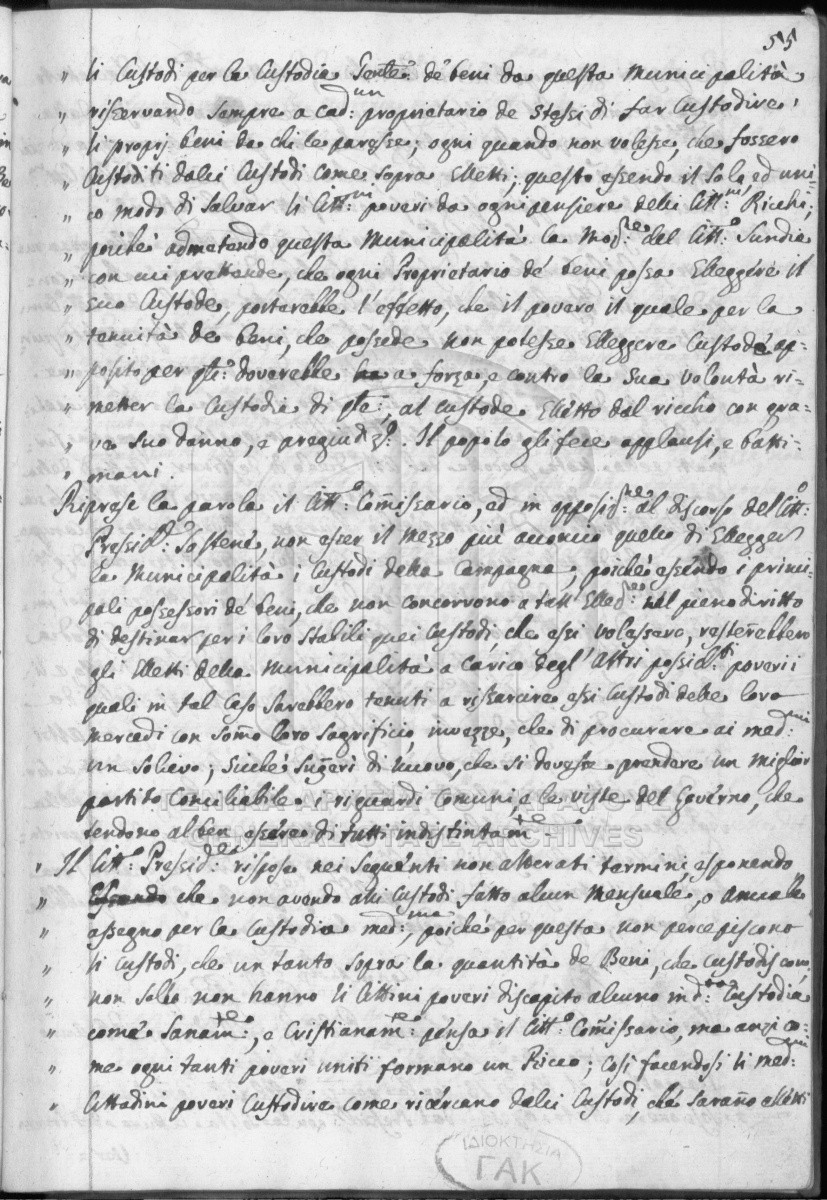 55
" li Custodi per la Custodia Gente: de beni da questa Municipalità
" risservando sempre a cad:un proprietario de Stessi di far Custodire
" li proprj beni da chi le paresse; ogni quando non volesse, che fossero
" Custoditi dalli Custodi come sopra Eletti; questo essendo il solo, ed uni-
" co modo di Salvar li Citt:ni poveri da ogni pensiere delli Citt:ni Ricchi;
" poiché admetendo questa Municipalità la Moz:ne del Citt:o Sundia
" con cui prettende, che ogni Proprietario de beni possa Elleggere il
" suo Custode, portarebbe l'effetto, che il povero il quale per la
" tenuità de beni, che possede non potesse Elleggere Custode ap-
" posito per qti:o doverebbe a forza, e contro la sua volontà ri-
" metter la Custodia di qta:, al custode Elletto dal riccho con gra-
" ve suo danno, e pregiudzo:. Il popolo gli fece applausi, e batti-
" mani.
Riprese la parola il Citt:o Comissario, ed in opposiz:ne al discorso del Citt:o
Pressid:te Sostenè, non esser il mezzo più acconcio quello di Ellegger
la Municipalità i Custodi della Campagna, poiché essendo i princi-
pali possessori de beni, che non concorrono a tall' Ellez:ne nel pieno diritto
di destinar per i loro Stabili quei Custodi, che essi volessero, resterebbero
gli Elletti della Municipalità a carico degl' Altri possid:ti poveri i
quali in tal Caso sarebbero tenuti a rissarcire essi Custodi delle loro
mercedi con Somo loro Sagrificio, invezze, che di procurare ai med:mi
un solievo; Sicché sugerì di nuovo, che si dovesse prendere un miglior
partito Conciliabile i riguardi Comuni, e le viste del Governo, che
tendono al ben essere di tutti indistintam:te
" Il Citt:o Pressid:te rispose nei seguenti non alterati termini, esponendo
" che non avendo alli Custodi fatto alcun mensuale, o Annuale
" assegno per la Custodia med:ma, poiché per questa non percepiscono
" li Custodi, che un tanto sopra la quantità de Beni, che Custodiscono,
" non solo non hanno li Cittini poveri discapito alcuno in d:ta Custodia
" come Sanam:te, e Cristianam:te pensa il Citt:o Comissario, ma anzi co-
" me ogni tanti poveri uniti formano un Ricco; così facendosi li med:mi
" Cittadini poveri Custodire come ricercano dalli Custodi, che sarano elletti
ΓΕΝΙΚΑ ΑΡΧΕΙΑ ΤΟΥ ΚΡΑΤΟΥΣ
GENERAL STATE ARCHIVES
ΙΔΙΟΚΤΗΣΙΑ
ΓΑΚ